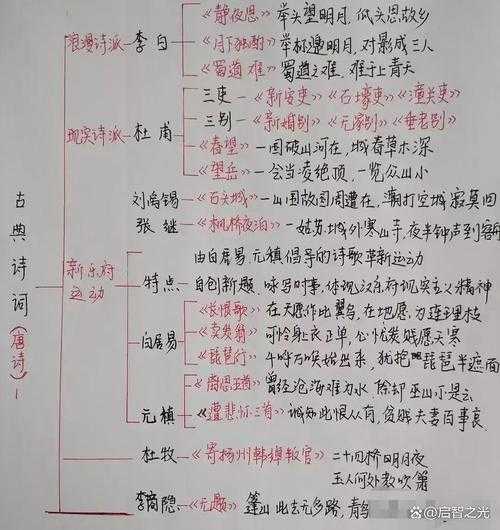 古典诗词(唐诗)
浪漫诗派 李白
《静夜思》举头望明月,低头思故乡
《月下独酌》举杯邀明月,对影成三人
《蜀道难》蜀道之难,难于上青天
现实诗派 杜甫
三吏—《新安吏》《石壕吏》《潼关吏》
三别—《新婚别》《无家别》《垂老别》
《春望》—国破山河在,城春草木深
《望岳》—会当凌绝顶,一览众山小
刘禹锡—《石头城》—山围故国周遭在,潮打空城寂寞回
张继—《枫桥夜泊》—姑苏城外寒山寺,夜半钟声到客船
新乐府运动
由白居易、元稹倡导的诗歌革新运动
特点—自创新题、咏写时事,体现汉乐府现实主义精神
白居易
《长恨歌》在天愿作比翼鸟,在地愿为连理枝
《卖炭翁》可怜身上衣正单,心忧炭贱愿天寒
《琵琶行》千呼万唤始出来,犹抱琵琶半遮面
元稹
《离思五首》曾经沧海难为水,除却巫山不是云
《遣悲怀三首》诚知此恨人人有,贫贱夫妻百事哀
杜牧—《寄扬州韩绰判官》二十四桥明月夜
玉人何处教吹箫
李商隐—《无题》蓬山此去无多路,青鸟
@启智之光